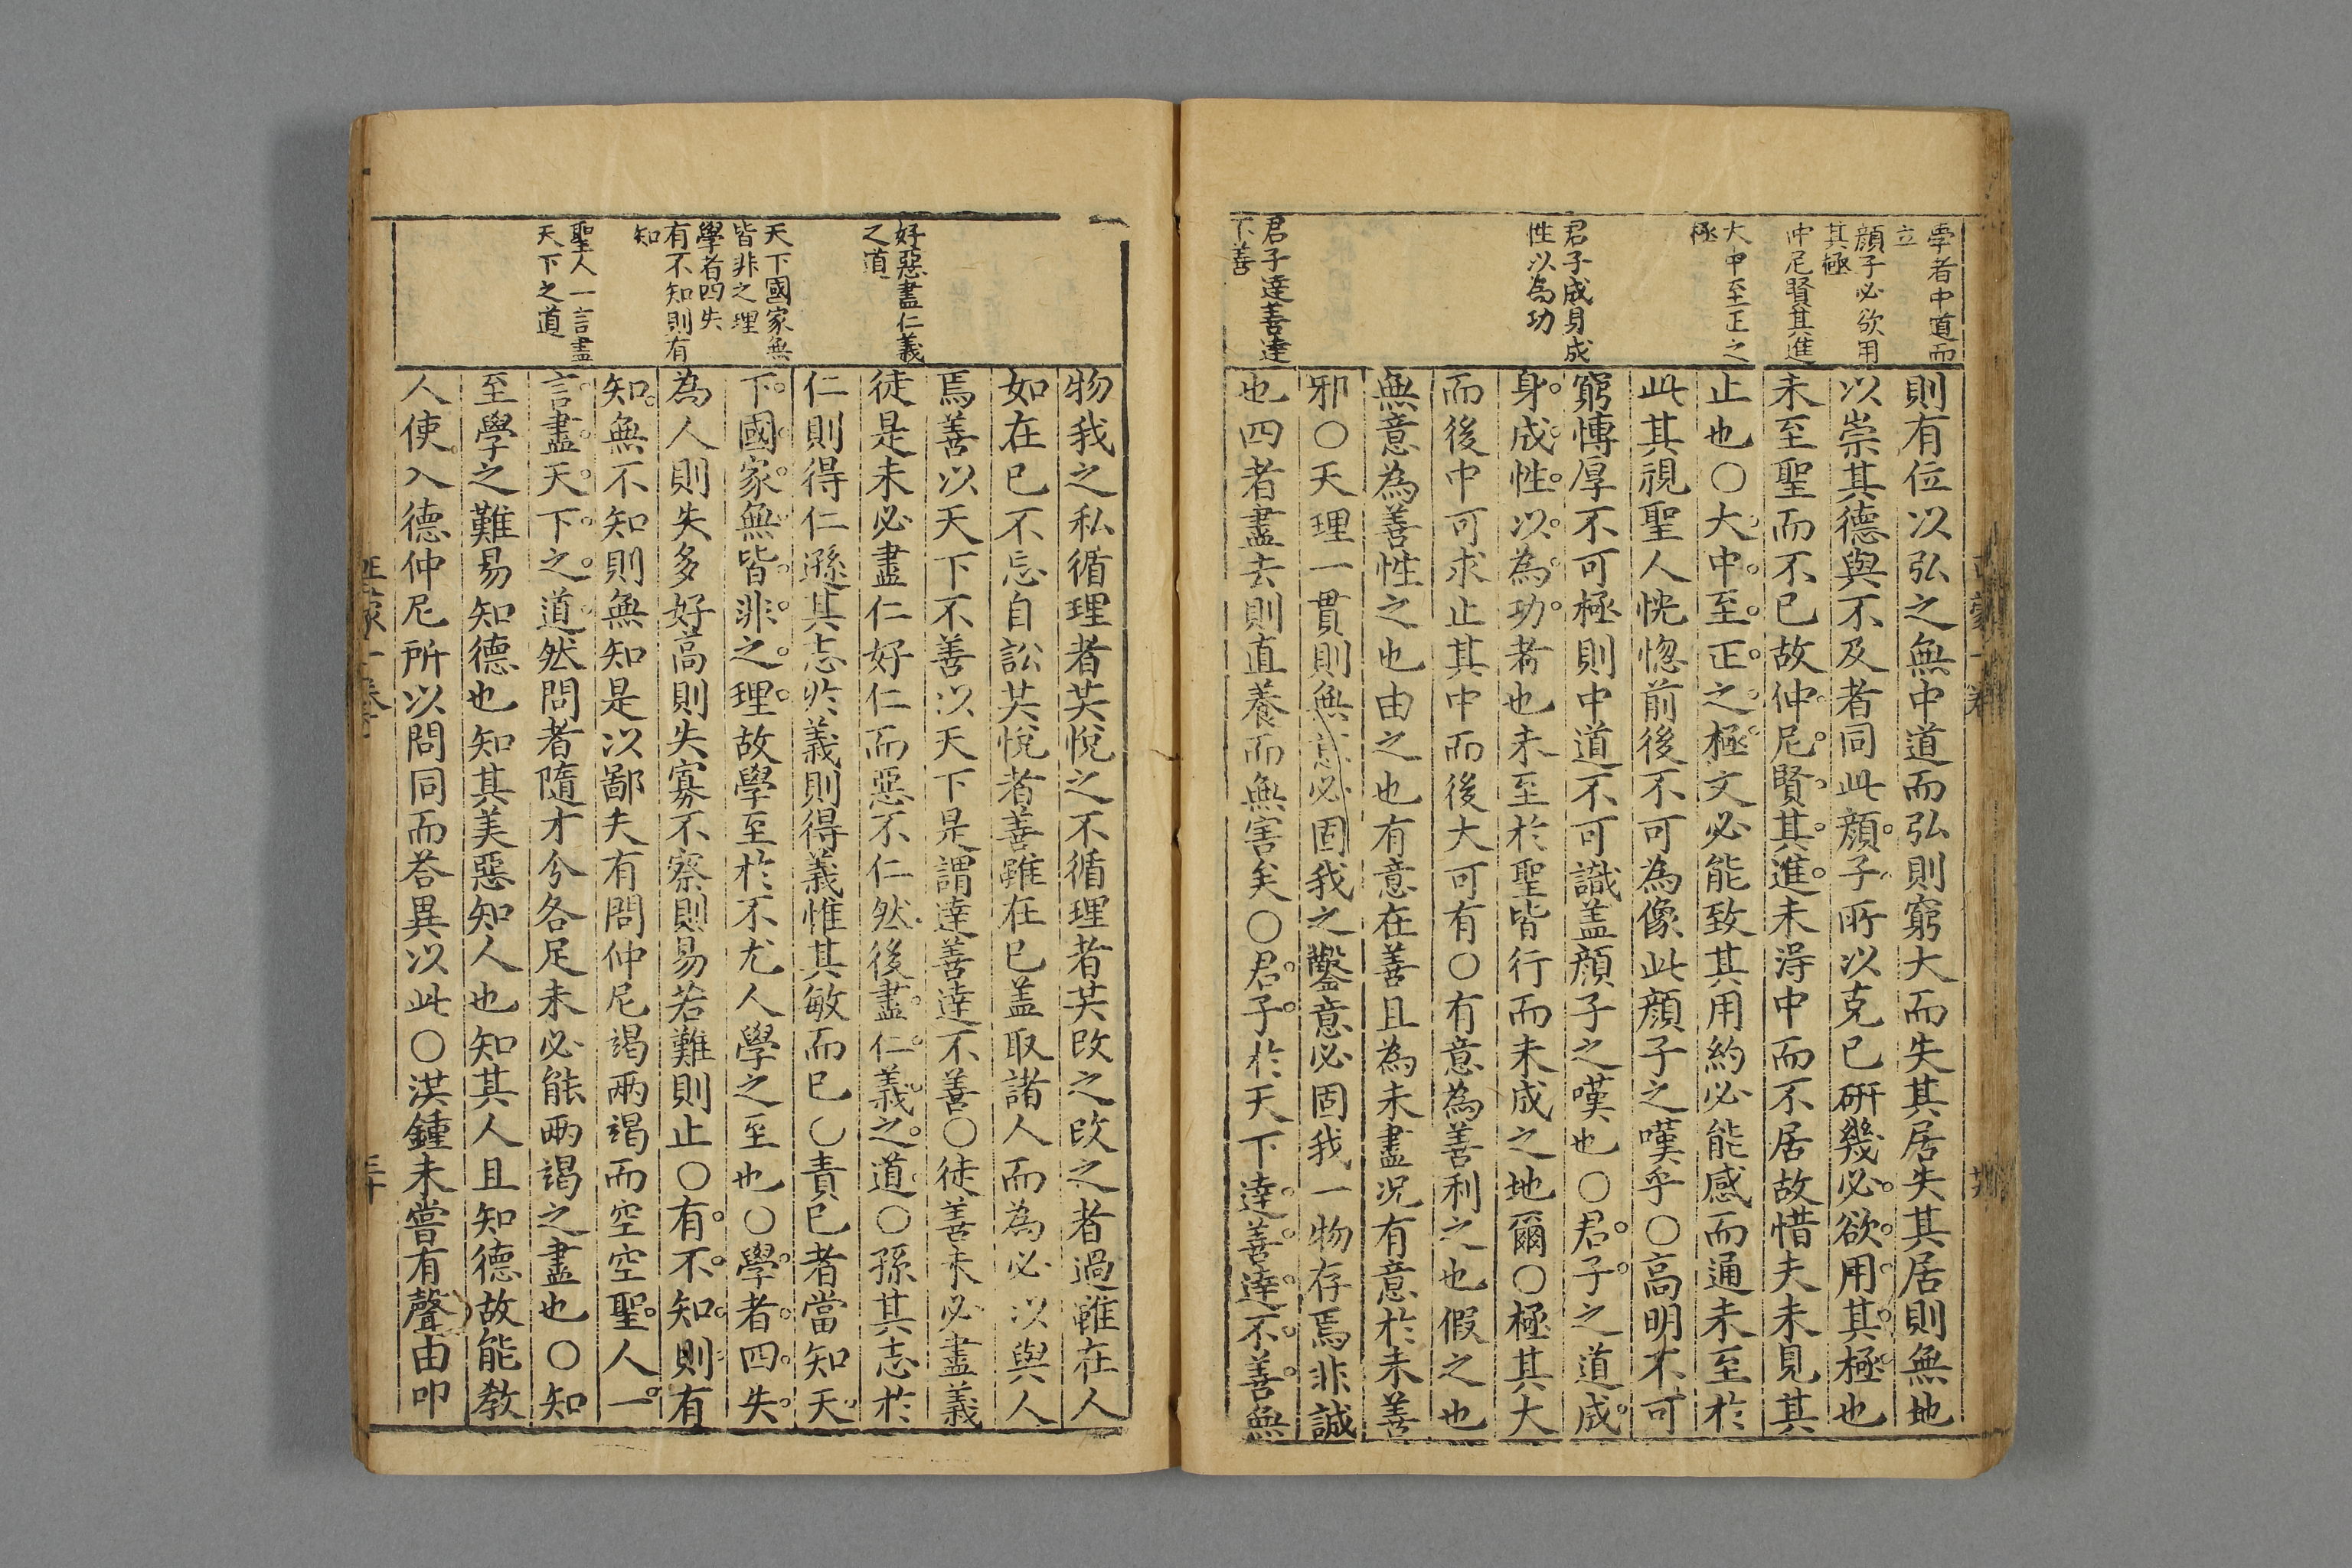 學者中道而
立
顔子必欲用
其極
仲尼賢其進
大中至正之
極
君子成身成
性以為功
君子達善達
不善
則有位以弘之無中道而弘則窮大而失其居失其居則無地
以崇其德與不及者同此顔子所以克已硏幾必欲用其極也
未至聖而不已故仲尼賢其進未得中而不居故惜夫未見其
止也○大中至正之極文必能致其用約必能感而通未至於
此其視聖人恍惚前後不可為像此顔子之嘆乎○高明不可
窮愽厚不可極則中道不可識盖顔子之嘆也○君子之道成
身成性以為功者也未至於聖皆行而未成之地爾○極其大
而後中可求止其中而後大可有○有意為善利之也假之也
無意為善性之也由之也有意在善且為未盡况有意於未善
邪○天理一貫則無意必固我之鑿意必固我一物存焉非誠
也四者盡去則直養而無害矣○君子於天下達善達不善無
好惡盡仁義
之道
天下國家無
皆非之理
學者四失
有不知則有
知
聖人一言盡
天下之道
物我之私循理者共悅之不循理者共改之改之者過雖在人
如在已不忘自訟共悅者善雖在已盖取諸人而為必以與人
焉善以天下不善以天下是謂達善達不善○徒善未必盡義
徒是未必盡仁好仁而惡不仁然後盡仁義之道○孫其志於
仁則得仁遜其志於義則得義惟其敏而已○責已者當知天
下國家無皆非之理故學至於不尤人學之至也○學者四失
為人則失多好高則失寡不察則易若難則止○有不知則有
知無不知則無知是以鄙夫有問仲尼竭兩竭而空空聖人一
言盡天下之道然問者隨才分各足未必能兩竭之盡也○知
至學之難易知德也知其美惡知人也知其人且知德故能敎
人使入德仲尼所以問同而荅異以此○洪鍾未嘗有聲由叩